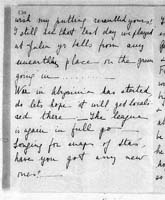 wish my putting resembled yours!
I still see that last day we played
at golf yr balls from any
unearthly place on the green
going in ............
War in Abyssinia has started
do lets hope it will get locali-
sed there — The League
is again in full go —
Longing for snaps of Stas,
have you got any new
ones?